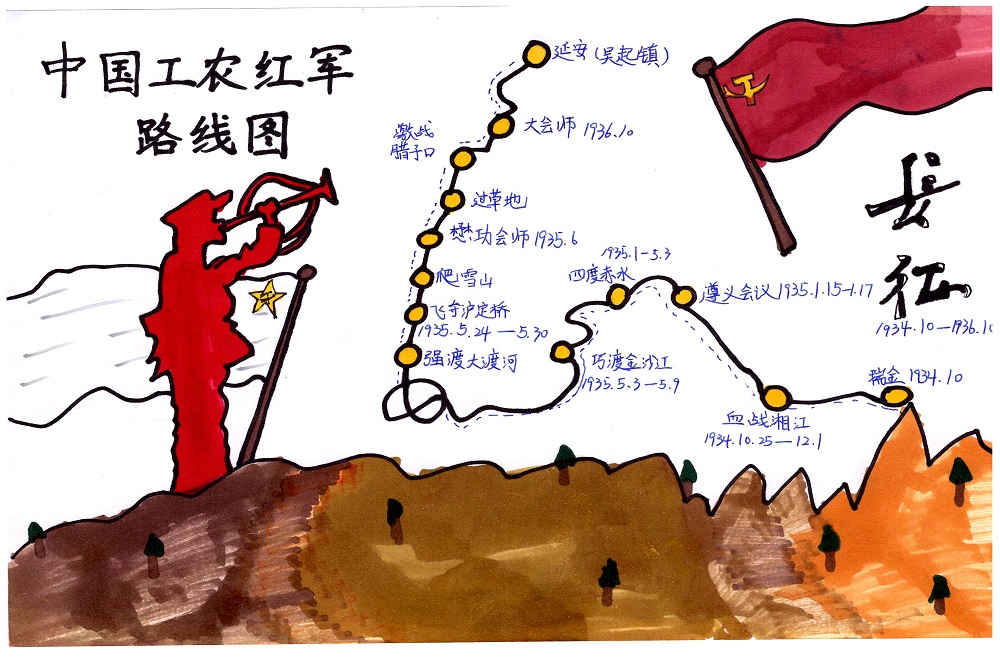 中国工农红军
路线图
长征
1934.10—1936.10
延安(吴起镇)
大会师 1936.10
激战
腊子口
过草地
懋功会师 1935.6
爬雪山
飞夺泸定桥
1935.5.24—5.30
强渡大渡河
1935.1-5.3
四度赤水
巧渡金沙江
1935.5.3—5.9
遵义会议 1935.1.15-1.17
血战湘江
1934.10.25—12.1
瑞金 1934.10